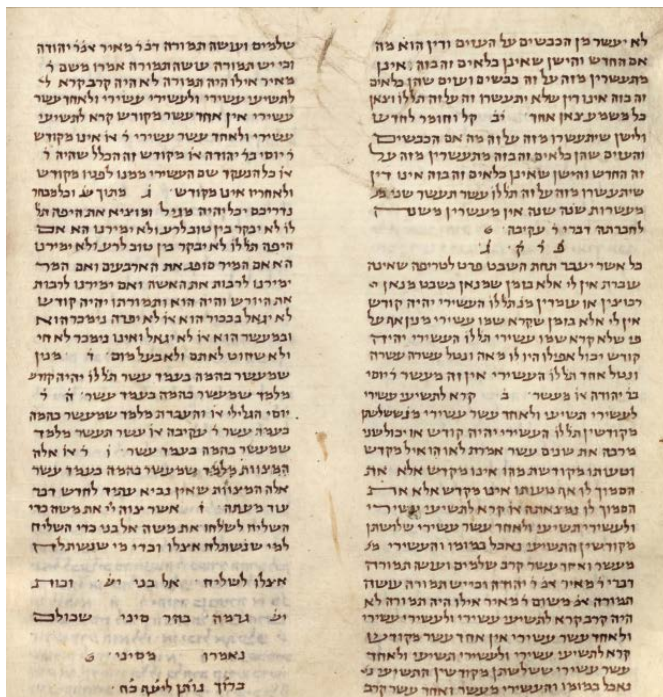 לא יעשר מן הכבשים על העזים ודין הוא מה
אם החדש והישן שאינן כלאים זה בזה אינן
מתעשרין מזה על זה כבשים ועזים שהן כלאים
זה בזה אינו דין שלא יתעשרו זה על זה תללו וצאן
כל משמע צאן אחד יב קל וחומר לחדש
ולישן שיתעשרו מזה על זה מה אם הכבשים
והעזים שהן כלאים זה בזה מתעשרין מזה על
זה החדש והישן שאינן כלאים זה בזה אינו דין
שיתעשרו מזה על זה תללו עשר תעשר שני מ
מעשרות שנה שנה אין מעשרין משנ
לחברתה דברי ר עקיבה
פ ר ק ג
כל אשר יעבר תחת השבט פרט לטריפה שאינה
עוברת אין לי אלא בזמן שמנאן בשבט מנאן
רבוצין או עומדין מנ תללו העשירי יהיה קודש
אין לי אלא בזמן שקרא שמו עשירי מנין אף על
פי שלא קרא שמו עשירי תללו העשירי יהיה
קודש יכול אפילו היו לו מאה ונטל עשרה עשרה
ונטל אחד תללו העשירי אין זה מעשר ר יוסי
בר יהודה או מעשר ב קרא לתשיעי עשירי
לעשירי תשיעי ולאחד עשר עשירי מנ ששלשתן
מקודשין תללו העשירי יהיה קודש או יכול שני
מרבה את שנים עשר אמרת לאו הואיל מקדש
וטעותו מקודשת מה הוא אינו מקדש אלא את
הסמוך לו אף טעותו אינו מקדש אלא את
הסמוך לו נמצאתה או קרא לתשיעי עשירי
ולעשירי תשיעי ולאחד עשר עשירי שלושתן
מקודשין התשיעי נאכל במומו והעשירי מ
מעשר ואחד עשר קרב שלמים ועשה תמורה
דברי ר מאיר אנר יהודה וכי יש תמורה עושה
תמורה אנ משום ר מאיר אילו היה תמורה לא
היה קרב קרא לתשיעי עשירי ולעשירי עשירי
ולאחד עשר עשירי אין אחד עשר מקודש
קרא לתשיעי עשירי ולעשירי תשיעי ולאחד
עשר עשירי ששלשתן מקודשין התשיעי נ
נאכל במומו והעשירי מעשר ואחד עשר קרב
שלמים ועשה תמורה דבר מאיר אנר יהודה
וכי יש תמורה עושה תמורה אמרו משם ר
מאיר אילו היה תמורה לא היה קרב קרא ל
לתשיעי עשירי ולעשירי עשירי ולאחד עשר
עשירי אין אחד עשר מקודש קרא לתשיעי
עשירי ולאחד עשר עשירי ר או אינו מקודש
ר יוסי בר יהודה או מקודש זה הכלל שהיה ר
או כל הנעקד שם העשירי ממנו לפניו מקודש
ולאחריו אינו מקודש ג מתוך ש וכל מבחר
נדריכם יכל יהיה מגיל ומוציא את היפה תל
לו לא יבקר בין טוב לרע ולא ימירנו הא אם
היפה תללו לא יבקר בין טוב לרע ולא ימירנו
הא אם המיר סופג את הארבעים ואם המר
ימירנו לרבות את האשה ואם ימירנו לרבות
את היורש והיה הוא ותמורתו יהיה קודש
לא יגאל בבכור הוא או לא יפדה נימכר הוא
ובמעשר הוא או לא יגאל ואינו נימכר לא חי
ולא שחוט לא תם ולא בעל מום ד מנין
שמעשר בהמה בעמד עשר תללו יהיה קודש
מלמד שמעשר בהמה בעמד עשר ה ר
יוסי הגלילי או והעברת מלמד שמעשר בהמה
בעמד עשר ר עקיבה או עשר תעשר מלמד
שמעשר בהמה בעמד עשר ו ר או אלה
המצוות מלמד שמעשר בהמה בעמד עשר
אלה המצוות שאין נביא עתיד לחדש דבר
עוד מעתה ז אשר צוה יי את משה כדי
השליח לשלחו את משה אל בני כדי השליח
למי שנשתלח אצלו וכדי מי שנשתלח
אצלו לשליח אל בני יש זכות
יש גרמה בהר סיני שכולם
נאמרו מסיני
ברוך נותן ליעף כח